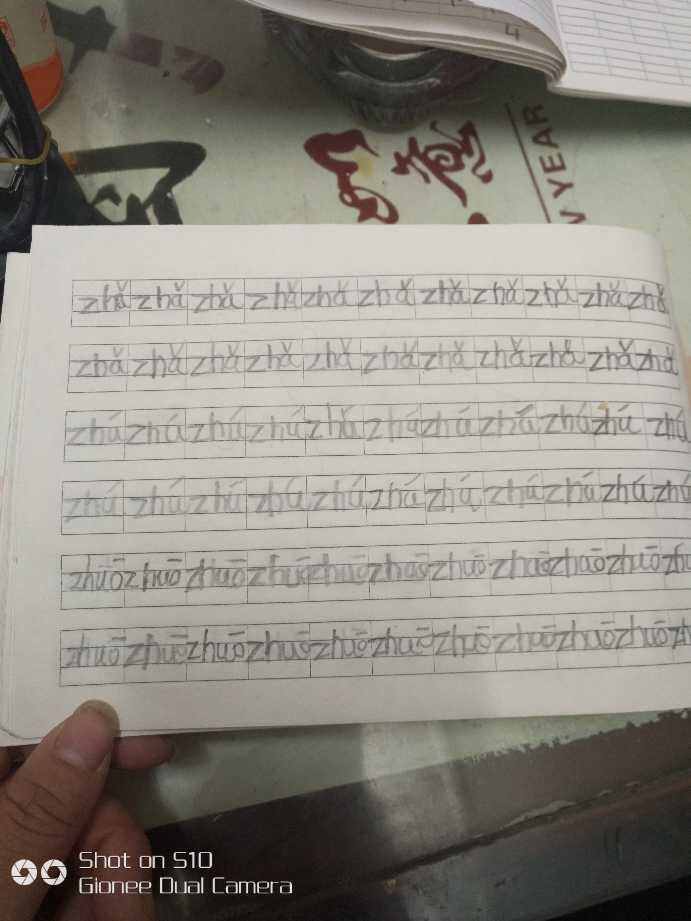 4
意
YEAR
zhǎ zhǎ zhǎ zhǎ zhǎ zhǎ zhǎ zhǎ zhǎ zhǎ zhǎ
zhǎ zhǎ zhǎ zhǎ zhǎ zhǎ zhǎ zhǎ zhǎ zhǎ zhǎ
zhú zhá zhú zhú zhǎ zhá zhú zhá zhú zhú zhú
zhú zhú zhú zhú zhú zhá zhá zhú zhú zhú zhú
zhuō zhuō zhuō zhuō zhuō zhuō zhuō zhuō zhuō zhuō
zhuō zhuō zhuō zhuō zhuō zhuō zhuō zhuō zhuō zhuō
Shot on S10
Gionee Dual Camera